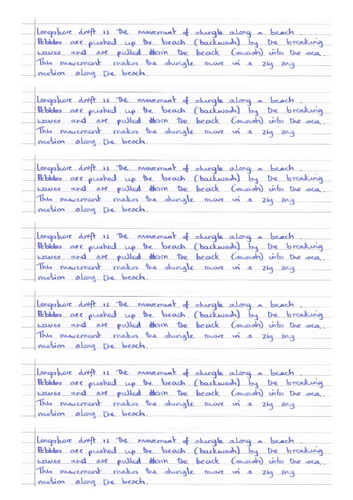 Longshore drift is the movement of shingle along a beach.
Pebbles are pushed up the beach (backwash) by the breaking
waves and are pulled down the beach (swash) into the sea.
This movement makes the shingle move in a zig zag
motion along the beach.
Longshore drift is the movement of shingle along a beach.
Pebbles are pushed up the beach (backwash) by the breaking
waves and are pulled down the beach (swash) into the sea.
This movement makes the shingle move in a zig zag
motion along the beach.
Longshore drift is the movement of shingle along a beach.
Pebbles are pushed up the beach (backwash) by the breaking
waves and are pulled down the beach (swash) into the sea.
This movement makes the shingle move in a zig zag
motion along the beach.
Longshore drift is the movement of shingle along a beach.
Pebbles are pushed up the beach (backwash) by the breaking
waves and are pulled down the beach (swash) into the sea.
This movement makes the shingle move in a zig zag
motion along the beach.
Longshore drift is the movement of shingle along a beach.
Pebbles are pushed up the beach (backwash) by the breaking
waves and are pulled down the beach (swash) into the sea.
This movement makes the shingle move in a zig zag
motion along the beach.
Longshore drift is the movement of shingle along a beach.
Pebbles are pushed up the beach (backwash) by the breaking
waves and are pulled down the beach (swash) into the sea.
This movement makes the shingle move in a zig zag
motion along the beach.
Longshore drift is the movement of shingle along a beach.
Pebbles are pushed up the beach (backwash) by the breaking
waves and are pulled down the beach (swash) into the sea.
This movement makes the shingle move in a zig zag
motion along the beach.